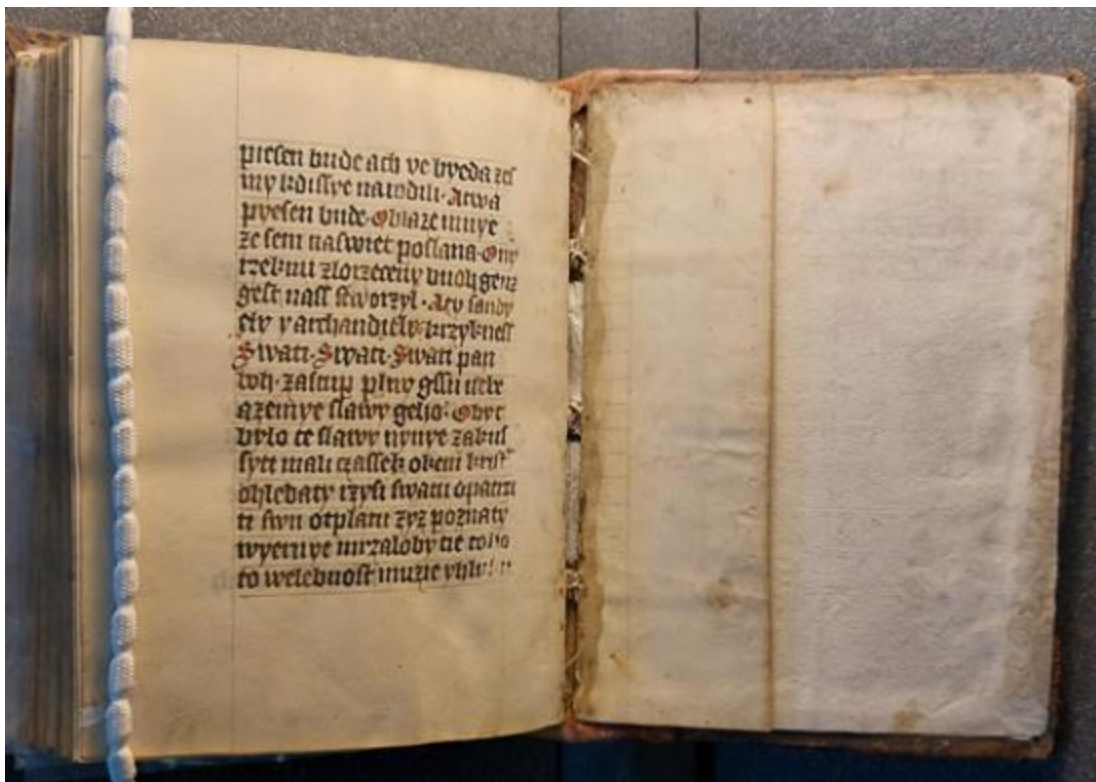 piesen bude ach ve byeda zes
my kdissye narodili · A twa
pyesen bude · Oblaze mnye
ze sem naswiet poslana · Ony
rzeknu zlorzeceny buoh genz
gest nass stworzyl · A ty sandy
ely y archandiely krzykness
Swati · Swati · Swati pan
boh · zastup plny gssu nebe
azemye slawy geho · O byt
bylo te slawy nynye zakus
syti mali czassek okem
ohledaty rzyssi swatu opatrzi
ti swu otplatu zyz poznaty
wyernye
to welebnost muzie